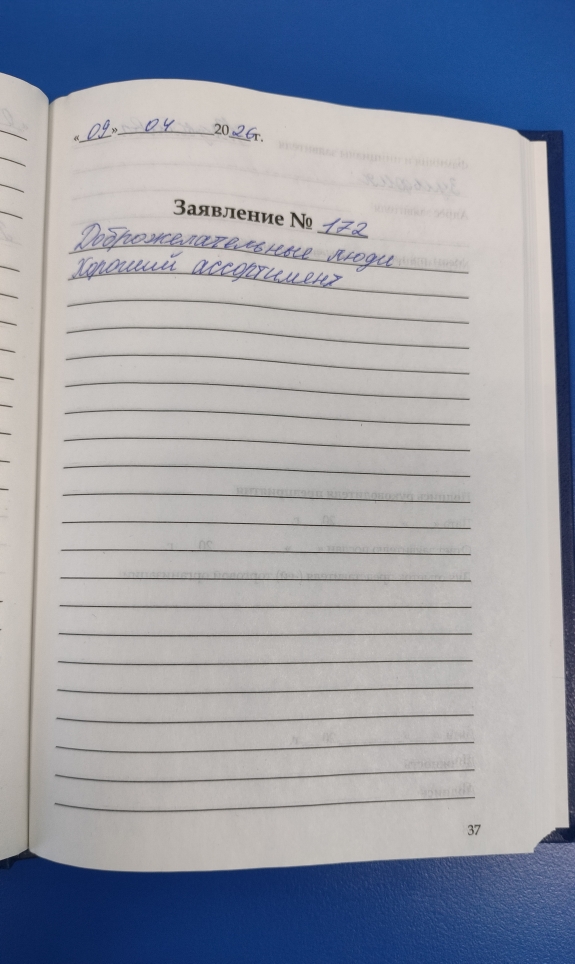 «09» 04 2026г.
Заявление № 172
Доброжелательные люди
Хороший ассортимент
37